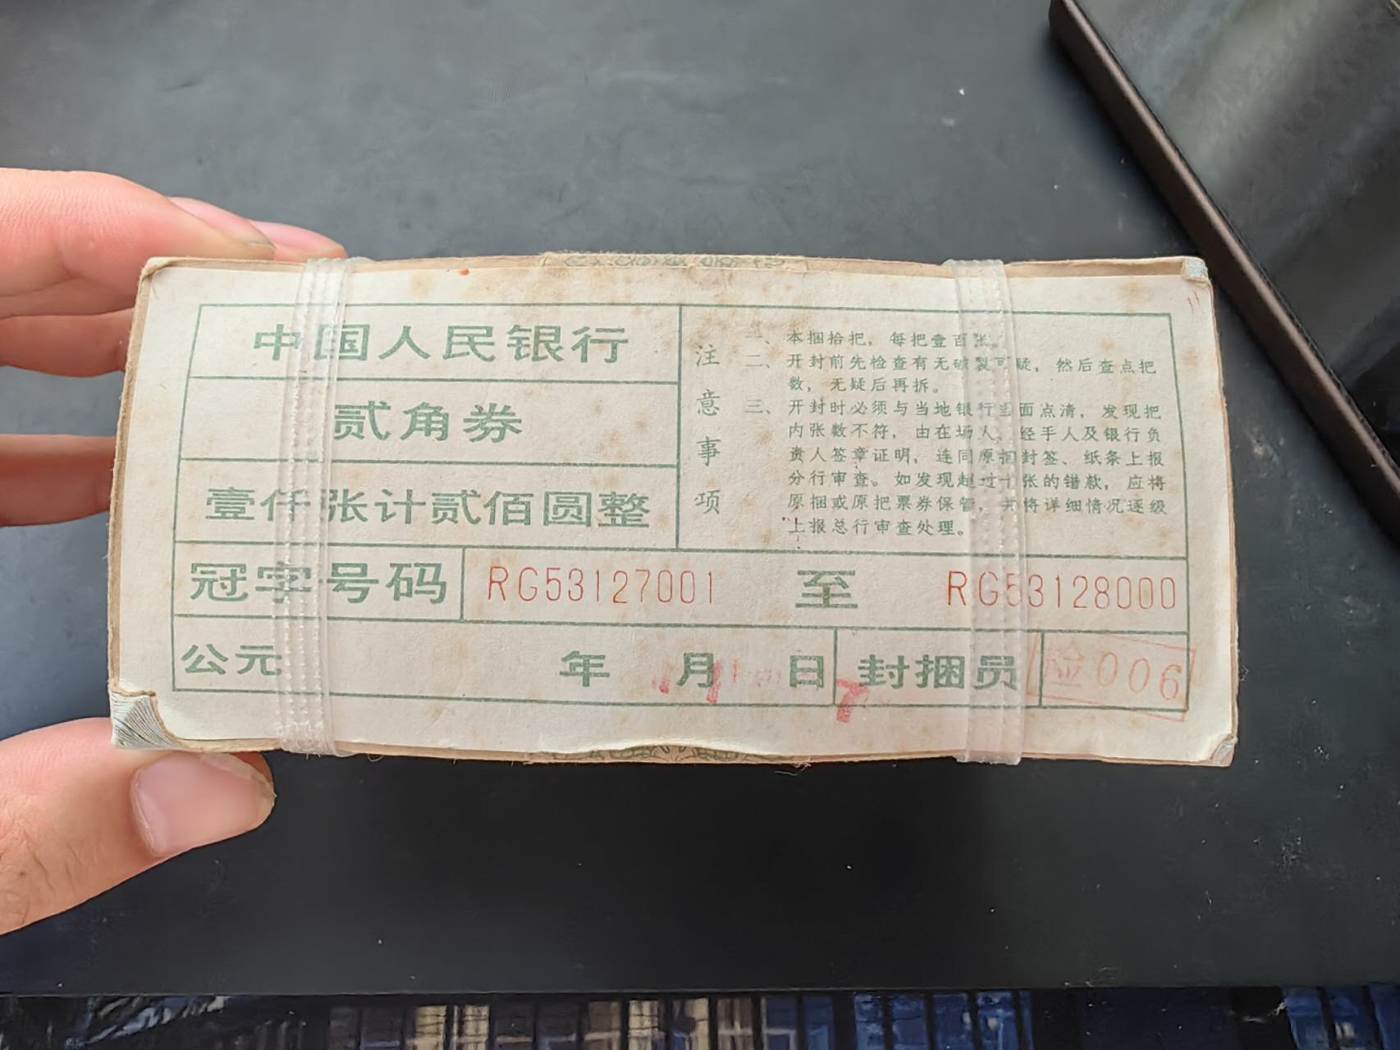 中国人民银行
贰角券
壹仟张计贰佰圆整
注意事项
一、本捆拾把，每把壹百张。
二、开封前先检查有无破裂可疑，然后查点把
数，无疑后再拆。
三、开封时必须与当地银行当面点清，发现把
内张数不符，由在场人、经手人及银行负
责人签章证明，连同原捆封签、纸条上报
分行审查。如发现超过十张的错款，应将
原捆或原把票券保管，并将详细情况逐级
上报总行审查处理。
冠字号码 RG53127001 至 RG53128000
公元 年 月 日 封捆员 检006